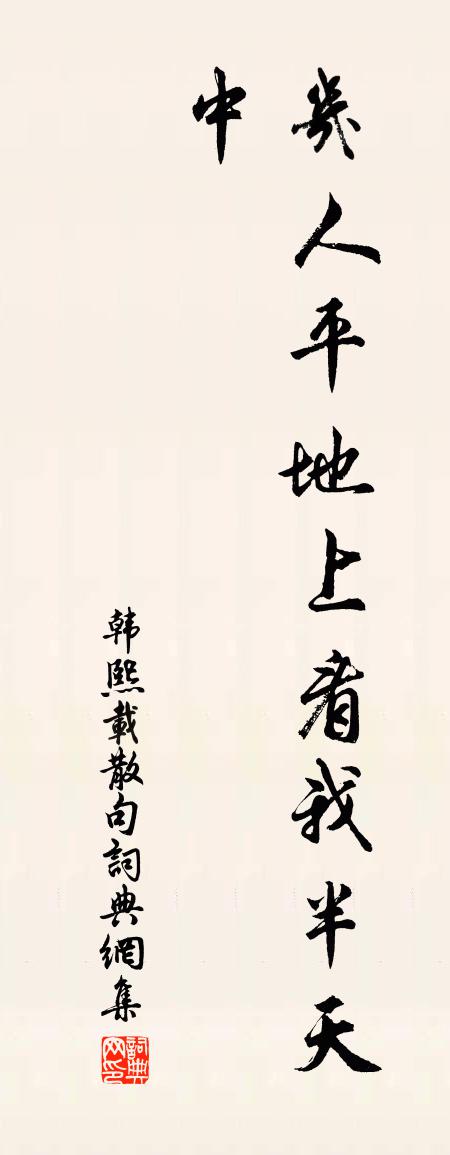 幾人平地上看我半天
中
韩熙載散句詞典網集
詞典网印